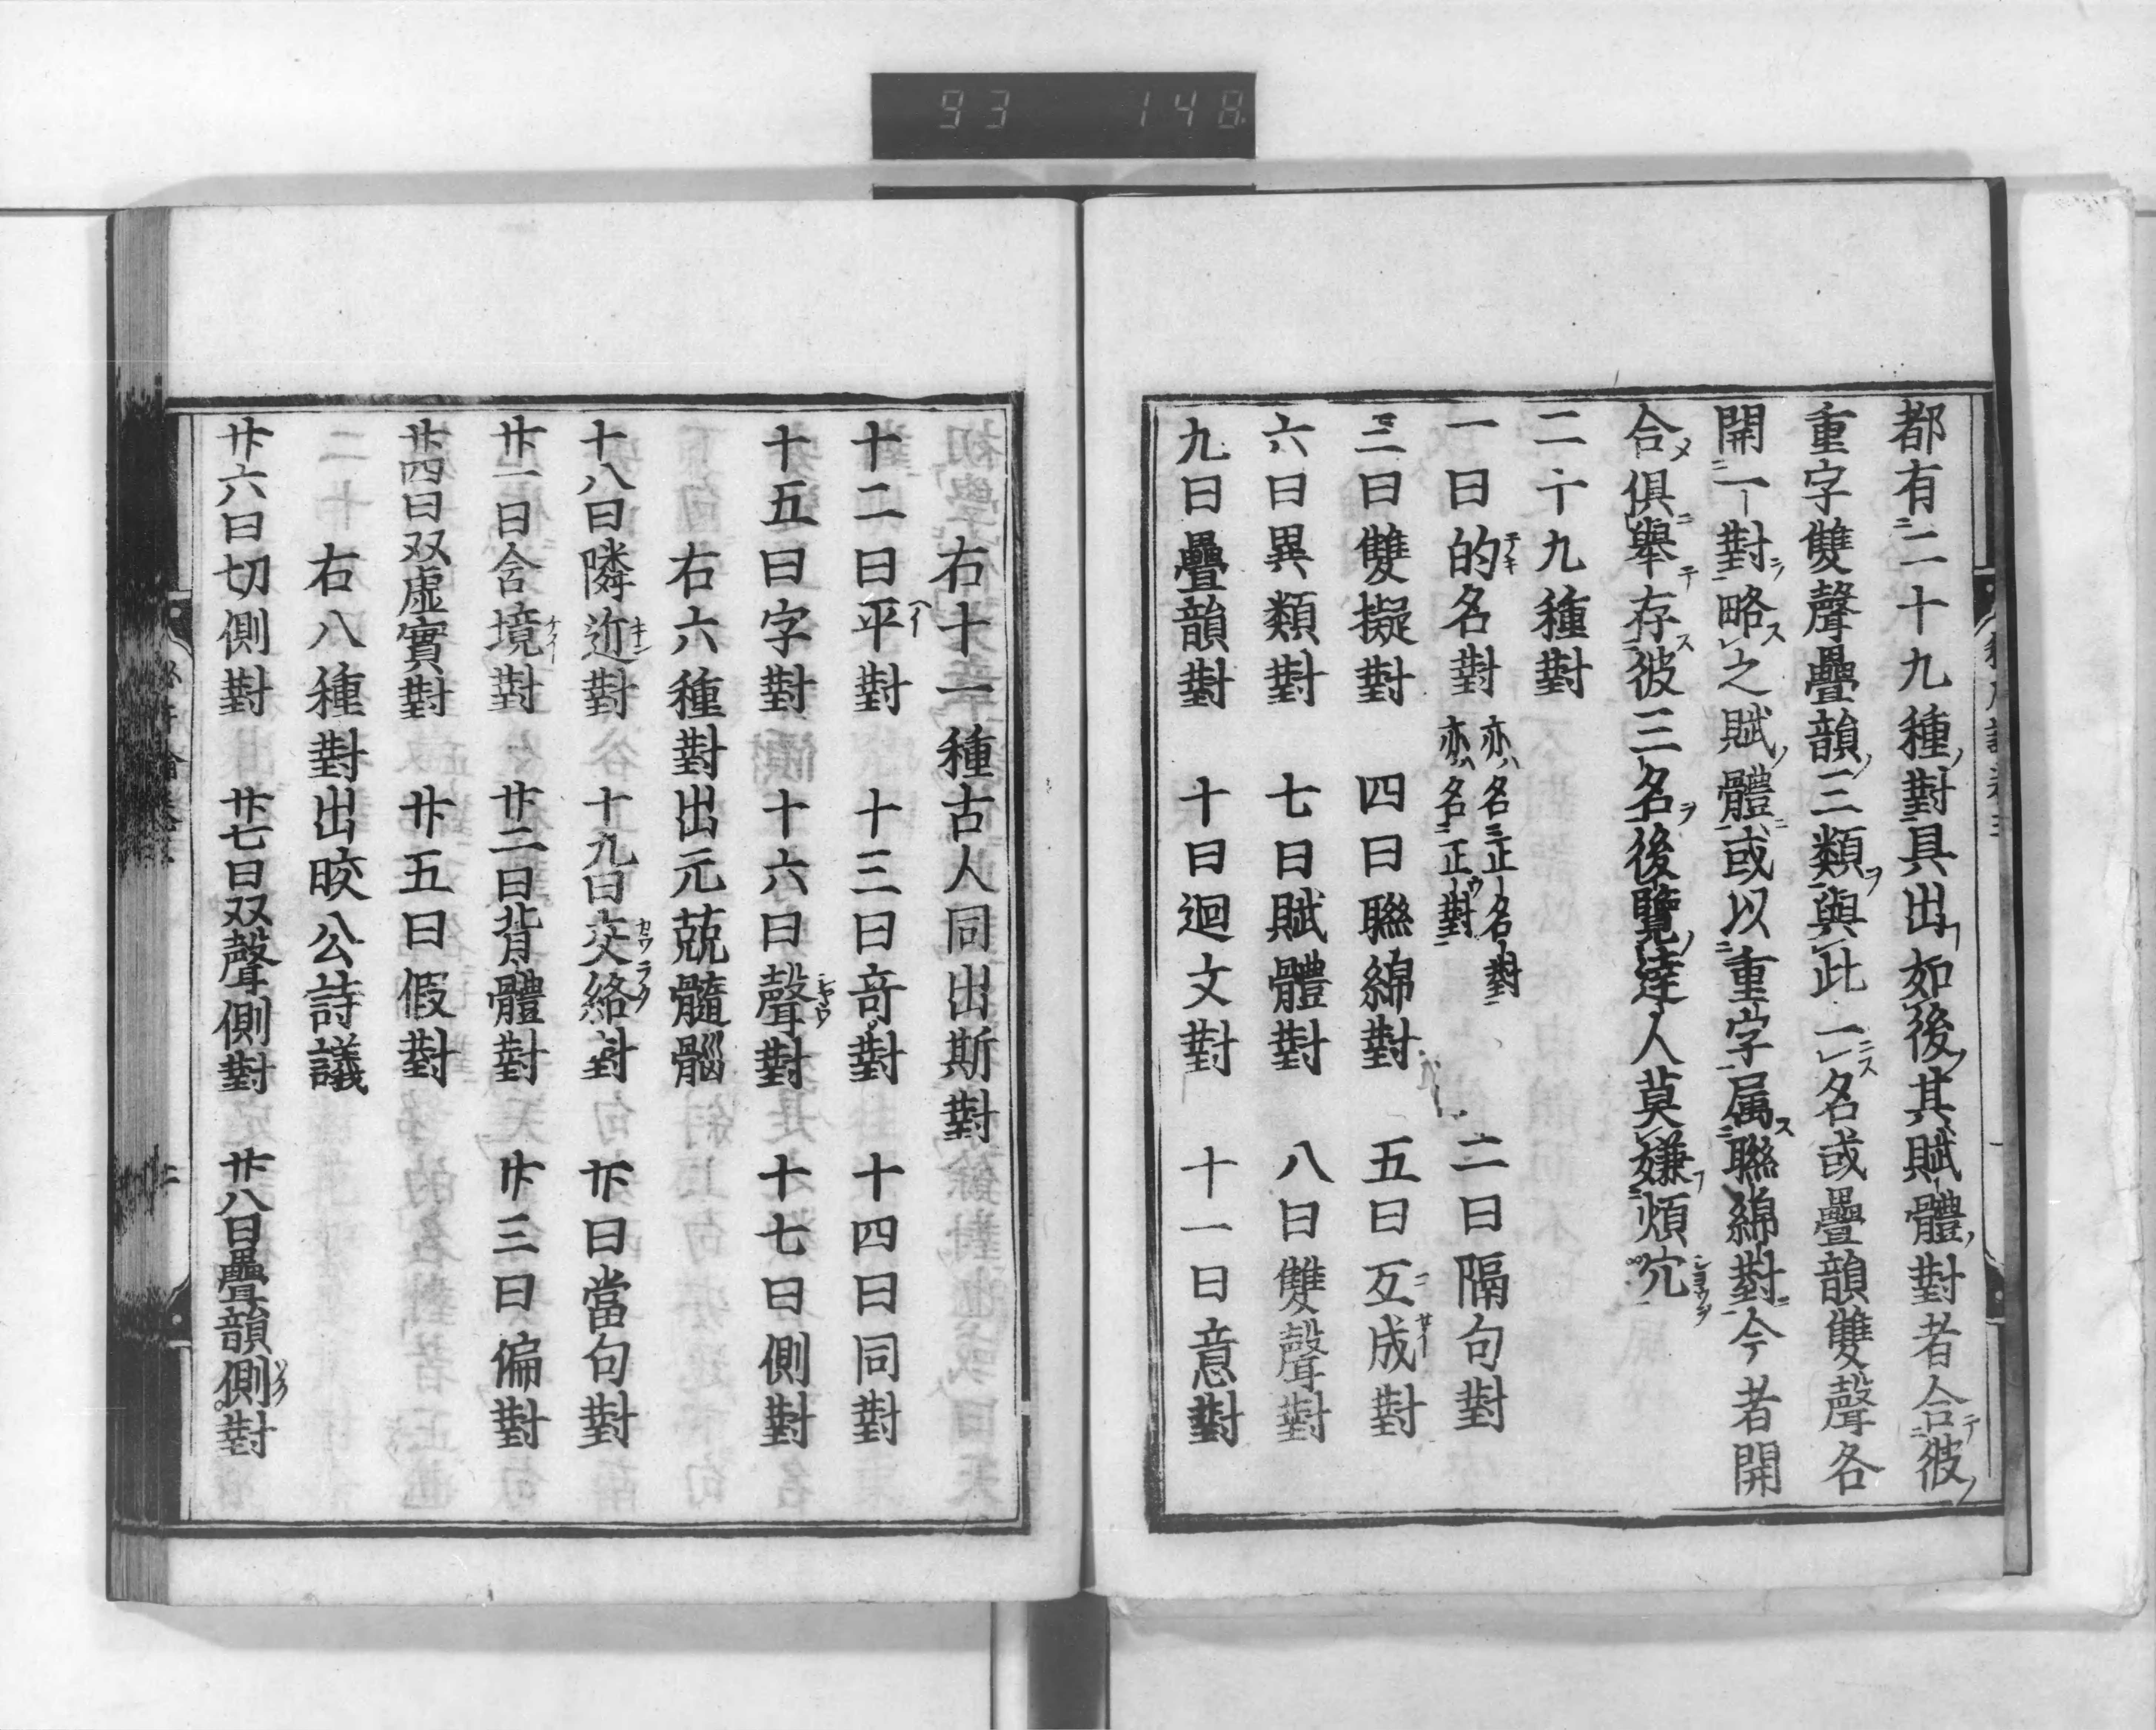 93 148
都有二十九種對具出如後其賦體對者合彼
重字雙聲疊韻三類與此一名或疊韻雙聲各
開一對略之賦體或以重字属聯綿對今者開
合俱舉存彼三名後覽達人莫嫌煩宂
二十九種對
一曰的名對 亦名正名對 亦名正對 二曰隔句對
三曰雙擬對 四曰聯綿對 五曰互成對
六曰異類對 七曰賦體對 八曰雙聲對
九曰疊韻對 十曰迴文對 十一曰意對
右十一種古人同出斯對
十二曰平對 十三曰竒對 十四曰同對
十五曰字對 十六曰聲對 十七曰側對
右六種對出元兢髓腦
十八曰隣近對 十九曰交絡對 廿曰當句對
廿一曰含境對 廿二曰背體對 廿三曰偏對
廿四曰双虛實對 廿五曰假對
右八種對出晈公詩議
廿六曰切側對 廿七曰双聲側對 廿八曰疊韻側對